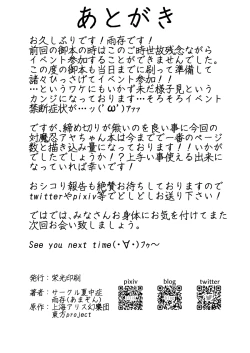 あとがき
お久しぶりです！雨存です！
前回の御本の時はこのご時世故残念ながら
イベント参加することができませんでした。
この度の御本も当日までに刷って準備して
諸々ひっさげてイベント参加！！
…というワケにもいかず未だ様子見という
カンジになっております…そろそろイベント
禁断症状が…ッ(˚ω˚)ｱｧｧ
ですが、締め切りが無いのを良い事に今回の
対魔忍アヤちゃん本は今までで一番のページ
数と描き込み量になっております！！いかが
でしたでしょうか！？上手い事使える出来に
なっていれば幸いです！
おシコリ報告も絶賛お待ちしておりますので
twitterやpixiv等でどしどしお送り下さい！
ではでは、みなさんお身体にお気を付けてまた
次回お会い致しましょう。
See you next time(･∀･)ﾌｩ～
発行：栄光印刷
著者：サークル夏中症
雨存(あまぞん)
原作：上海アリス幻樂団
東方project
pixiv
blog
twitter